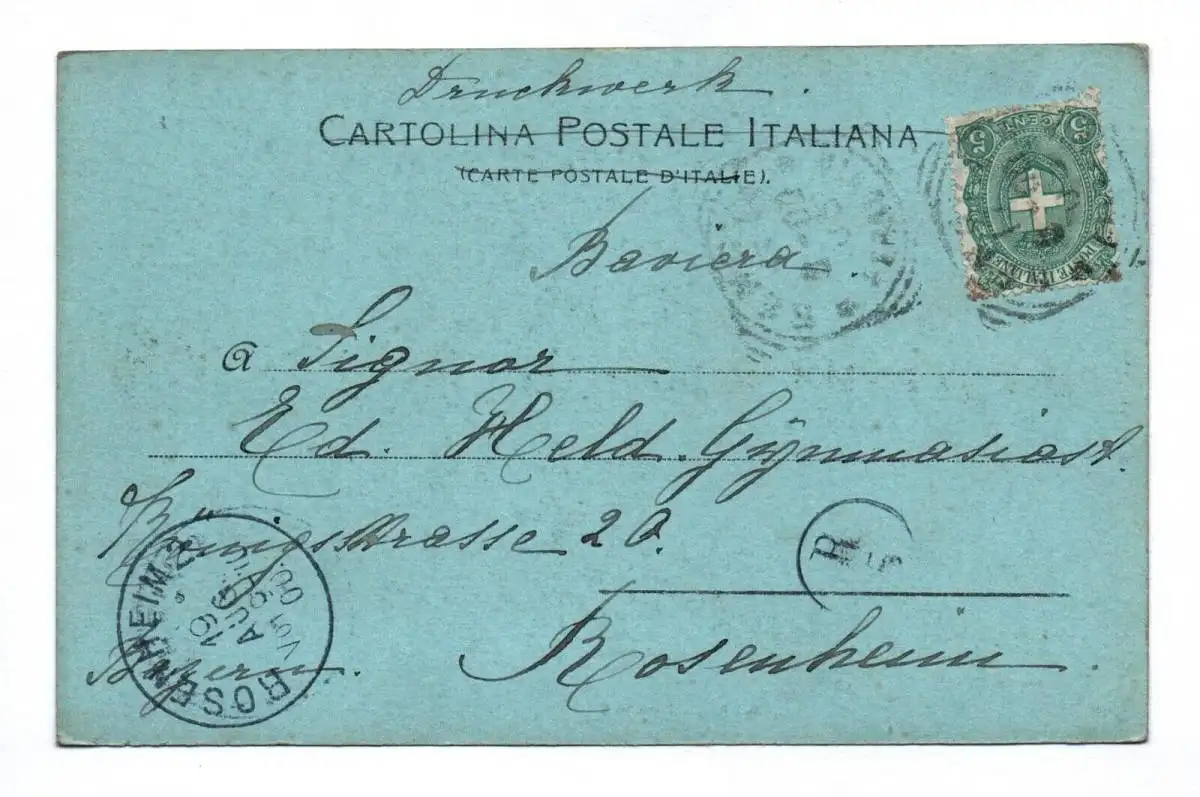 Druckwerk.
CARTOLINA POSTALE ITALIANA
(CARTE POSTALE D'ITALIE).
5 CENT 5
POSTE ITALIANE
Baviera.
a Signor
Ed. Held. Gÿmnasiast.
Königsstrasse 20.
R 5
Rosenheim.
Bayern
ROSENHEIM 2
16
AUG.
VORM
00.